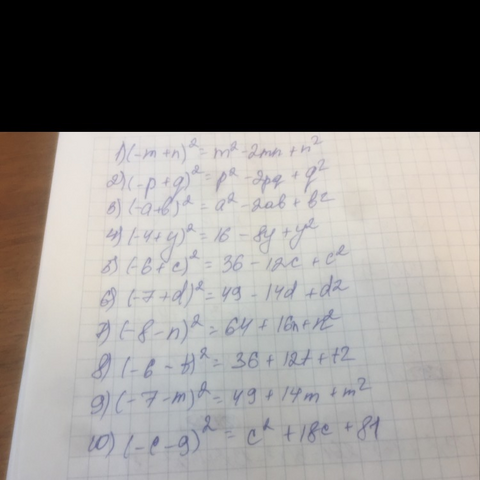 1) (-m+n)² = m² - 2mn + n²
2) (-p+q)² = p² - 2pq + q²
3) (-a+b)² = a² - 2ab + b²
4) (-4+y)² = 16 - 8y + y²
5) (-6+c)² = 36 - 12c + c²
6) (-7+d)² = 49 - 14d + d2
7) (-8-n)² = 64 + 16n + n²
8) (-6-t)² = 36 + 12t + t2
9) (-7-m)² = 49 + 14m + m²
10) (-c-9)² = c² + 18c + 81